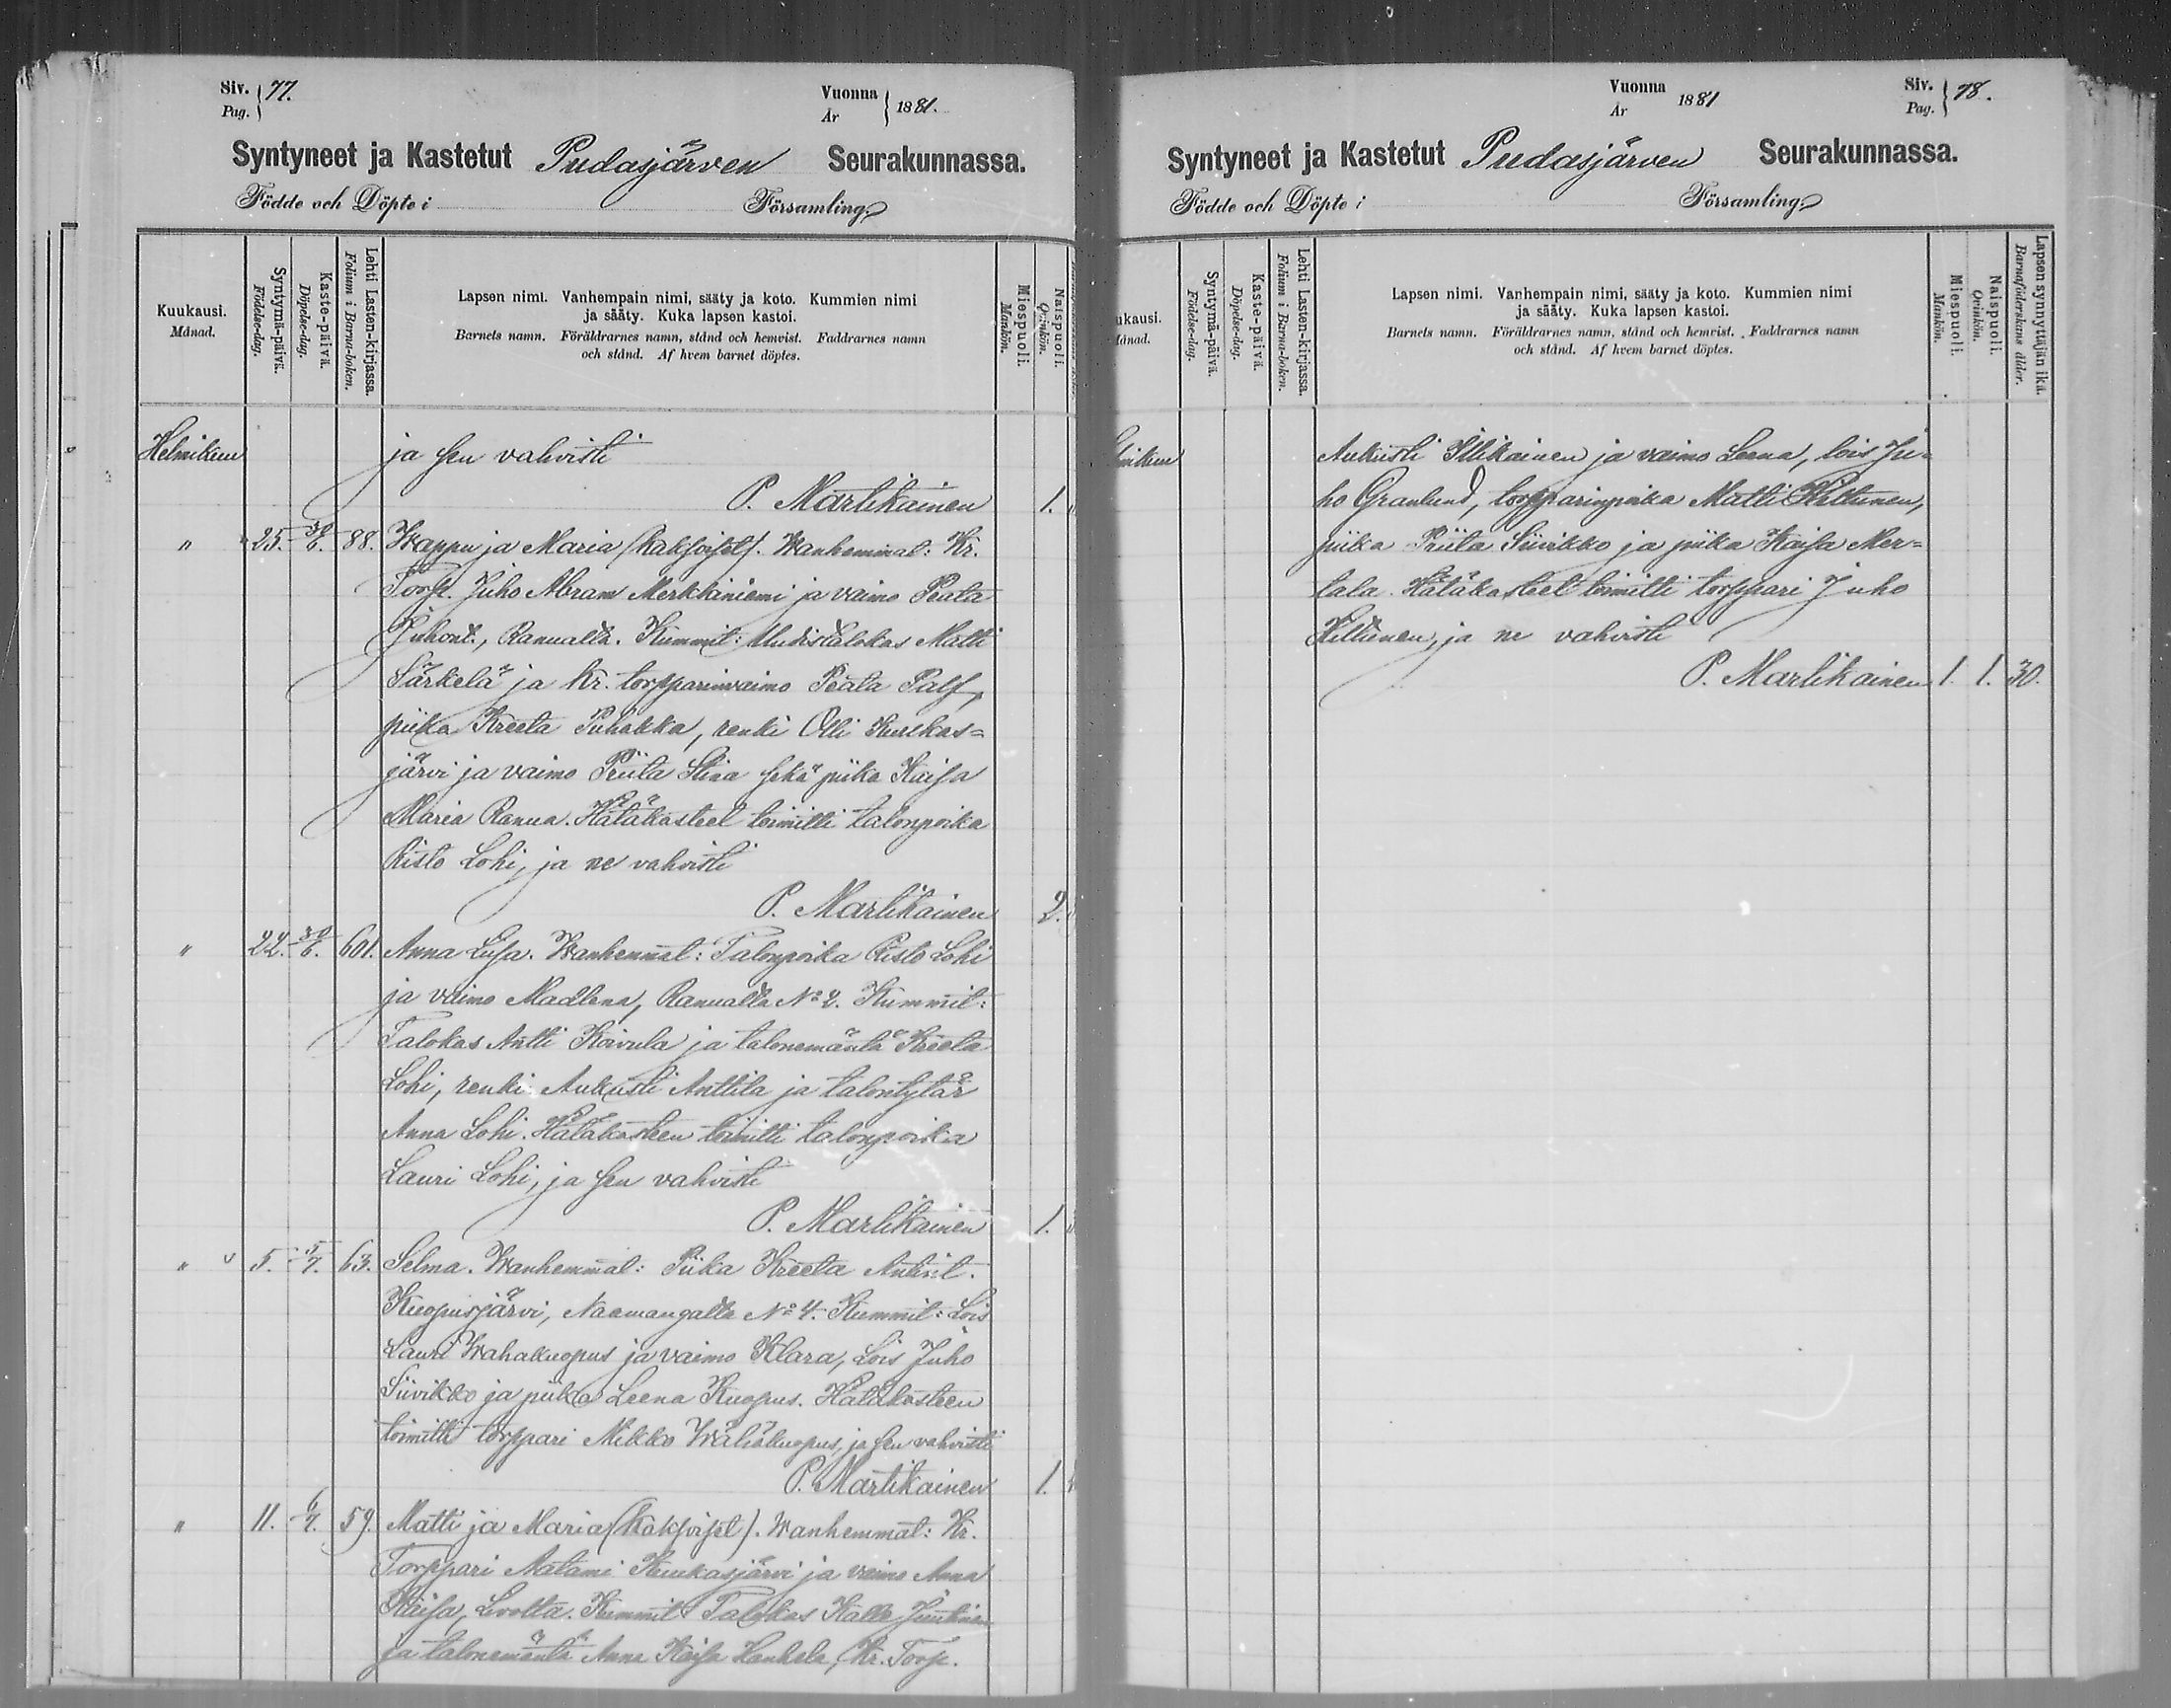 Siv. 77.
Pag.
Vuonna 1881.
År
Syntyneet ja Kastetut Pudasjärven Seurakunnassa.
Födde och Döpte i Församling.
Kuukausi.
Månad.
Syntymä-päivä.
Födelse-dag.
Kaste-päivä.
Döpelse-dag.
Lehti Lasten-kirjassa.
Folium i Barna-boken.
Lapsen nimi. Vanhempain nimi, sääty ja koto. Kummien nimi
ja sääty. Kuka lapsen kastoi.
Barnets namn. Föräldrarnes namn, stånd och hemvist. Faddrarnes namn
och stånd. Af hvem barnet döptes.
Miespuoli.
Mankön.
Naispuoli.
Qvinkön.
Helmikuu ja sen vahvisti
P. Martikainen 1.
" 25. 30/6. 88. Wappu ja Maria (kaksoiset). Wanhemmat: Kr.
Torp. Juho Abram Merkkiniemi ja vaimo Peata
Juhont., Ranualta. Kummit: Uudistalokas Matti
Särkelä ja kr. torpparinvaimo Peata Pals,
piika Kreeta Puhakka, renki Olli Kuukas=
järvi ja vaimo Priita Stiina sekä piika Kaisa
Maria Ranua. Hätäkasteet toimitti talonpoika
Risto Lohi, ja ne vahvisti
P. Martikainen 2.
" 22. 30/6. 601. Anna Liisa. Wanhemmat: Talonpoika Risto Lohi
ja vaimo Madlena, Ranualta No 2. Kummit:
Talokas Antti Koivula ja talonemäntä Kreeta
Lohi, renki Aukusti Anttila ja talontytär
Anna Lohi. Hätäkasteen toimitti talonpoika
Lauri Lohi, ja sen vahvisti
P. Martikainen 1.
" 5. 5/7. 63. Selma. Wanhemmat: Piika Kreeta Antint.
Kuopusjärvi, Naamangalta No 4. Kummit: Lois
Lauri Wähäkuopus ja vaimo Klara, Lois Juho
Siivikko ja piika Leena Kuopus. Hätäkasteen
toimitti torppari Mikko Wähäkuopus, ja sen vahvisti
P. Martikainen 1.
" 11. 6/7. 59. Matti ja Maria (kaksoiset). Wanhemmat: Kr.
Torppari Aatami Kuukasjärvi ja vaimo Anna
Kaisa, Livolta. Kummit: Talokas Kalle Juntinen
ja talonemäntä Anna Kaisa Hanhela, Kr. Torp.
Vuonna 1881
År
Siv. 78.
Pag.
Syntyneet ja Kastetut Pudasjärven Seurakunnassa.
Födde och Döpte i Församling.
ukausi.
Månad.
Syntymä-päivä.
Födelse-dag.
Kaste-päivä.
Döpelse-dag.
Lehti Lasten-kirjassa.
Folium i Barna-boken.
Lapsen nimi. Vanhempain nimi, sääty ja koto. Kummien nimi
ja sääty. Kuka lapsen kastoi.
Barnets namn. Föräldrarnes namn, stånd och hemvist. Faddrarnes namn
och stånd. Af hvem barnet döptes.
Miespuoli.
Mankön.
Naispuoli.
Qvinkön.
Lapsen synnyttäjän ikä.
Barnaföderskans ålder.
Aukusti Illikainen ja vaimo Leena, lois Ju=
ho Granlund, torpparinpoika Matti Hiltunen,
piika Priita Siivikko ja piika Kaisa Mer=
tala. Hätäkasteet toimitti torppari Juho
Hiltunen, ja ne vahvisti
P. Martikainen 1. 1. 30.